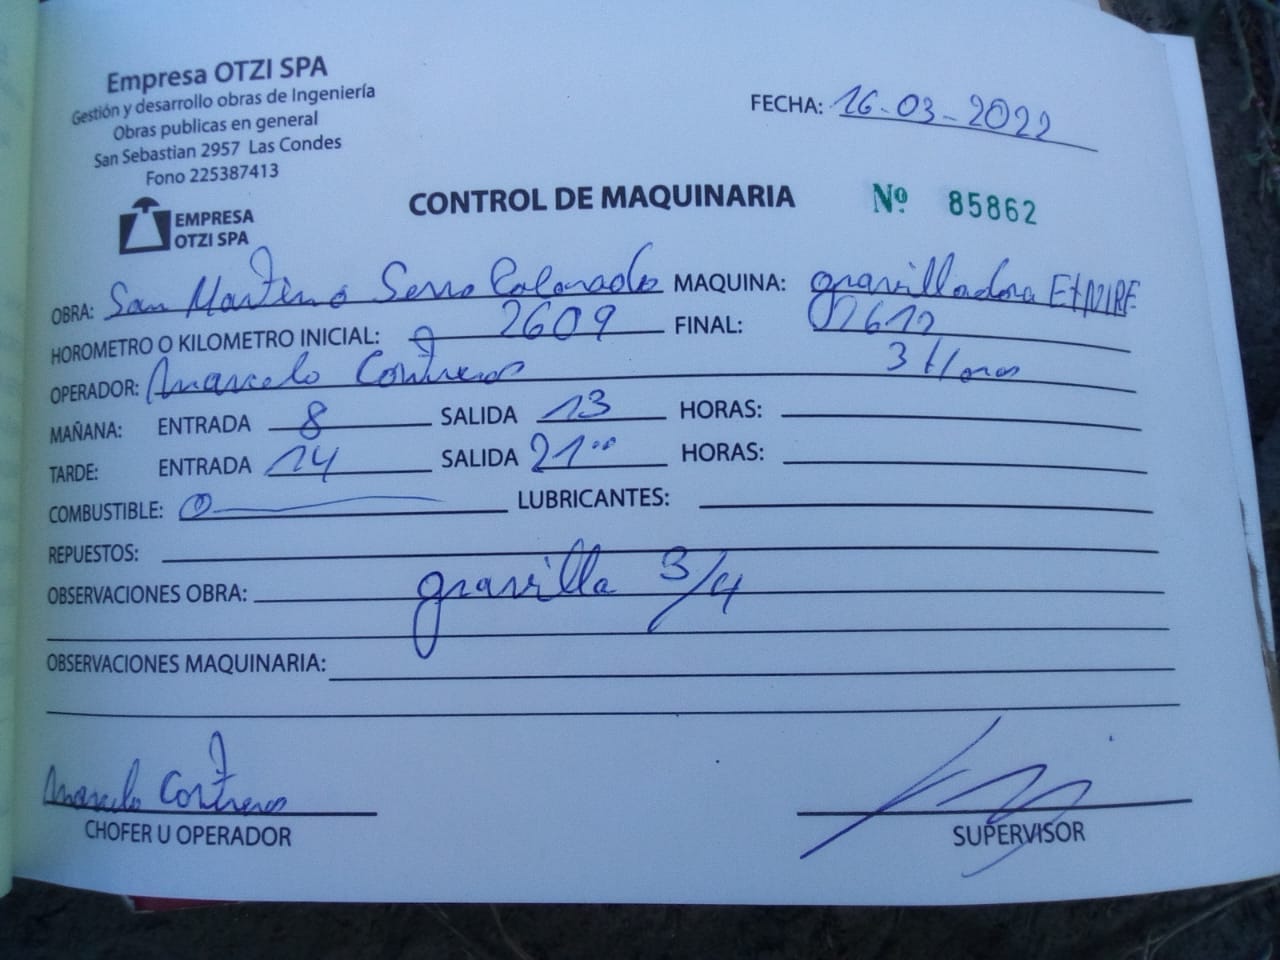 Empresa OTZI SPA
Gestión y desarrollo obras de Ingeniería
Obras publicas en general
San Sebastian 2957 Las Condes
Fono 225387413
EMPRESA
OTZI SPA
FECHA: 16-03-2022
CONTROL DE MAQUINARIA Nº 85862
OBRA: San Martino Serro Colorado MAQUINA: gravilladora EtNIRE
HOROMETRO O KILOMETRO INICIAL: 2609 FINAL: 02612
OPERADOR: Marcelo Contreras 3 Horas
MAÑANA: ENTRADA 8 SALIDA 13 HORAS:
TARDE: ENTRADA 14 SALIDA 21°° HORAS:
COMBUSTIBLE: 0 LUBRICANTES:
REPUESTOS:
OBSERVACIONES OBRA: gravilla 3/4
OBSERVACIONES MAQUINARIA:
Marcelo Contreras
CHOFER U OPERADOR SUPERVISOR